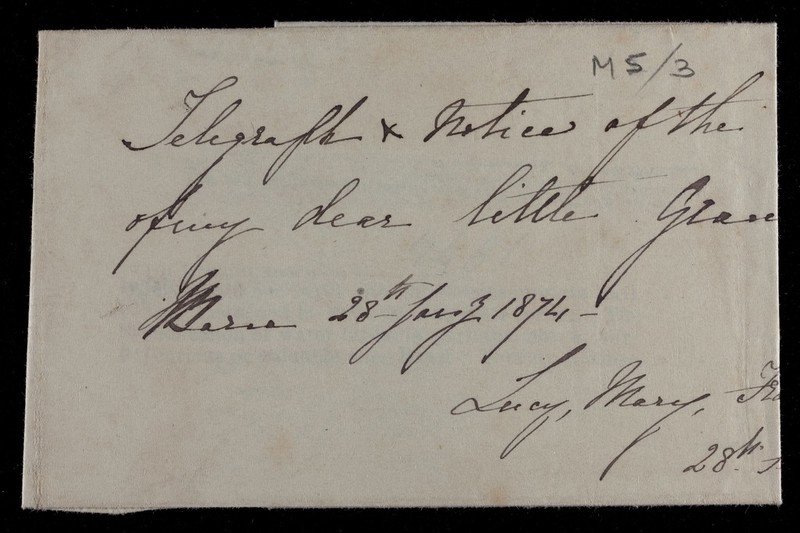 M 5/3
Telegraph & Notice of the
of my dear little Gran
Born 28th Jany 1874 –
Lucy, Mary, Fra
28th